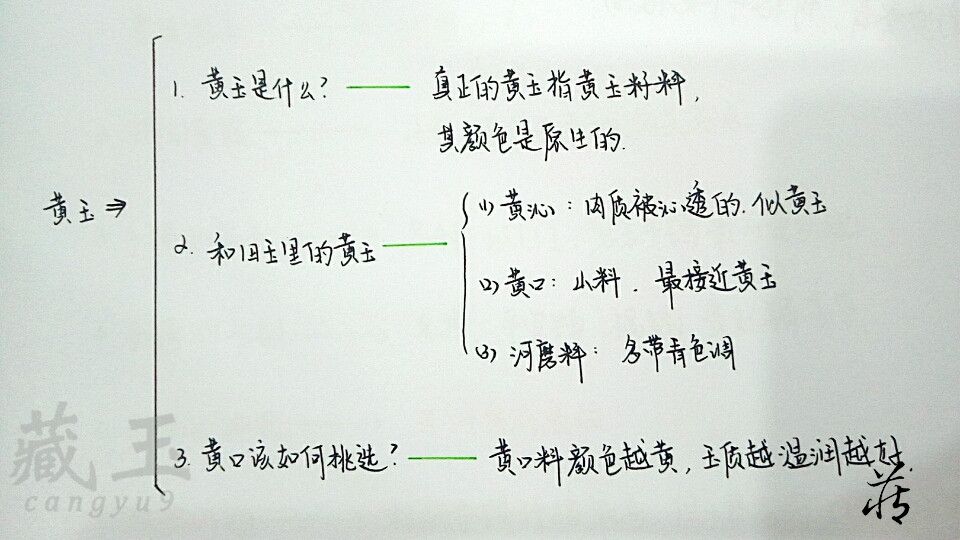 1. 黄玉是什么? —— 真正的黄玉指黄玉籽料,
其颜色是原生的.
黄玉⇒
2. 和田玉里的黄玉 ——
(1) 黄沁: 肉质被沁透的.似黄玉
(2) 黄口: 山料. 最接近黄玉
(3) 河磨料: 多带青色调
3. 黄口该如何挑选? —— 黄口料颜色越黄,玉质越温润越好.
藏玉
cangyu9